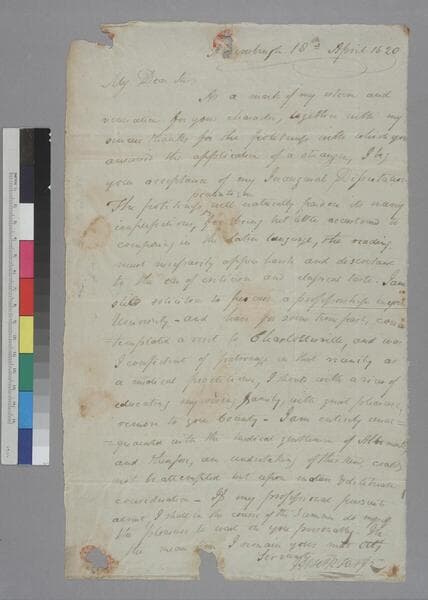 18th April 1820
My Dear Sir
As a mark of my esteem and
veneration for your character, together with my
sincere thanks for the politeness with which you
answered the application of a stranger, I beg
your acceptance of my Inaugural Dissertation
The politeness will naturally pardon its many
imperfections, for being but little accustomed to
composing in the Latin language, the reading
must necessarily appear harsh and discordant
to the ear of criticism and classical taste. I am
still solicitous to procure a professorship in your
University - and have for some time past, con
=templated a visit to Charlottsville, and was
I confident of patronage in that vicinity as
a medical practitioner, I should with a view of
educating my rising family, with great pleasure,
remove to your County - I am entirely unac=
=quainted with the medical gentlemen of Albemarle
and therefore, an undertaking of this kind, could
not be attempted but upon mature & deliberate
consideration - If my professional pursuits
admit I shall in the course of the Summer do myself
the pleasure to wait on you personally. In
the mean time I remain yours most Obt
Servant